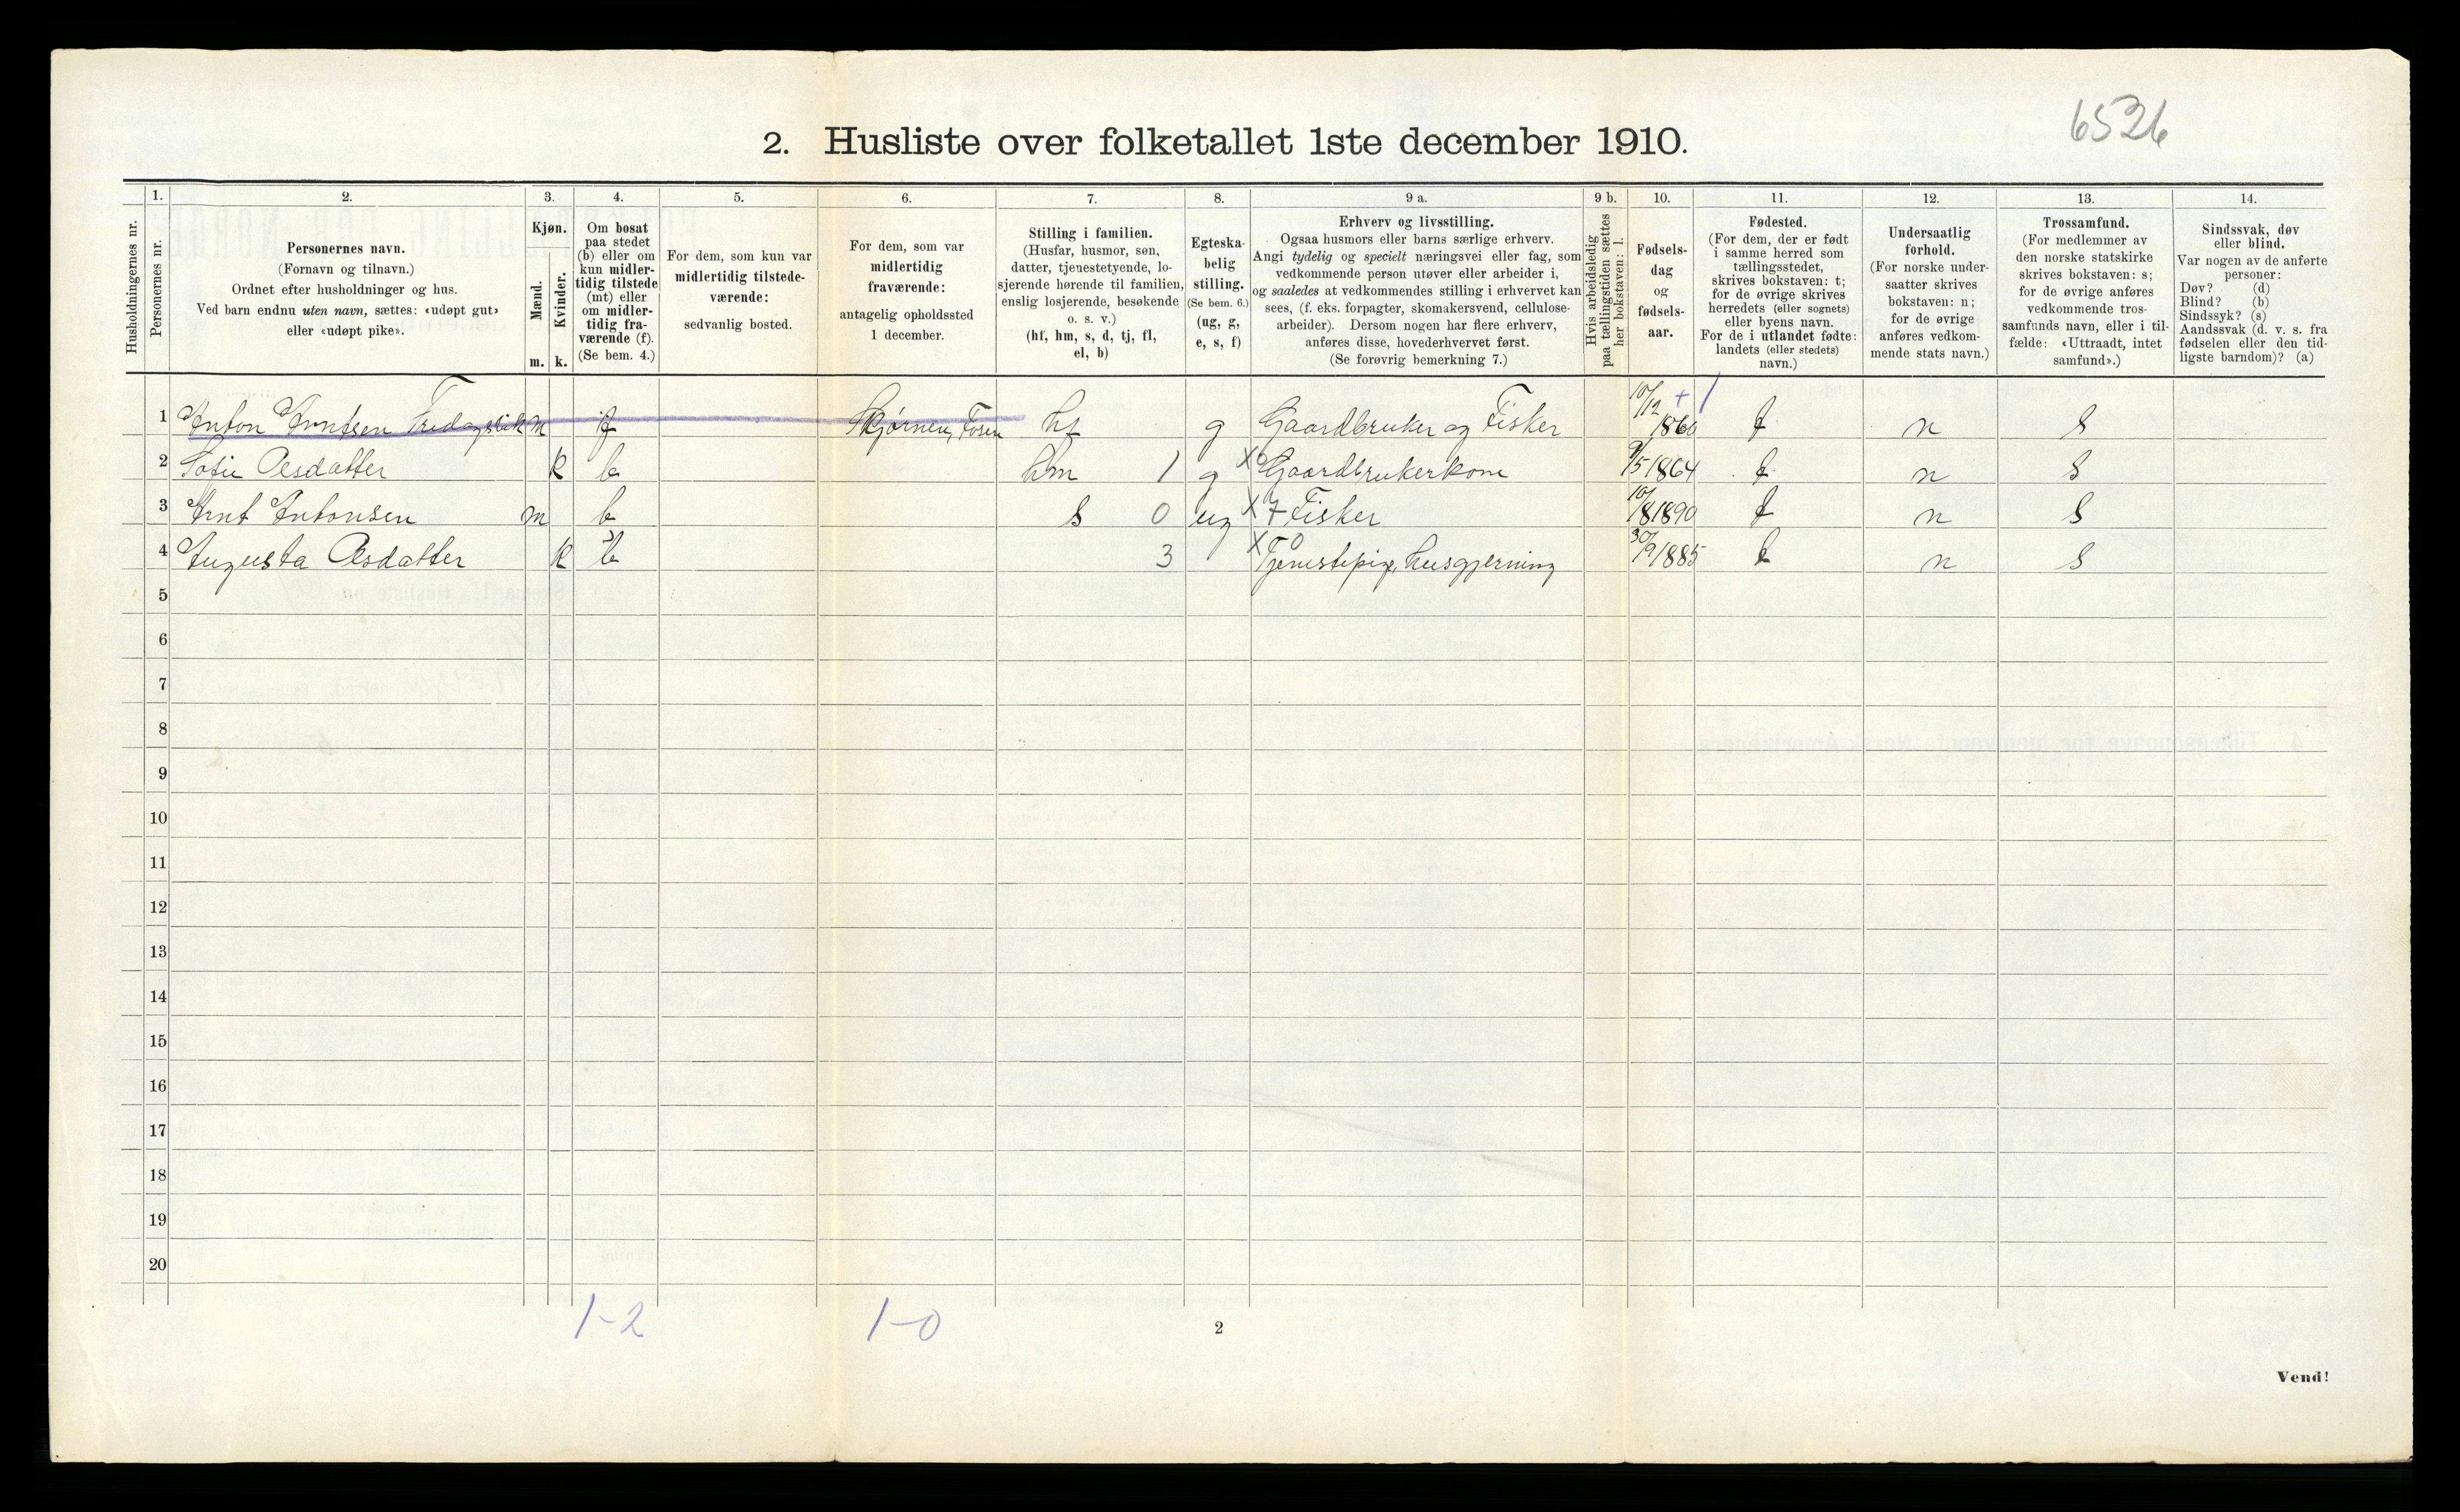 6526
2. Husliste over folketallet 1ste december 1910.
Husholdningernes nr.
1.
Personernes nr.
2.
Personernes navn.
(Fornavn og tilnavn.)
Ordnet efter husholdninger og hus.
Ved barn endnu uten navn, sættes: «udøpt gut»
eller «udøpt pike».
3.
Kjøn.
Mænd.
Kvinder.
m. k.
4.
Om bosat
paa stedet
(b) eller om
kun midler-
tidig tilstede
(mt) eller
om midler-
tidig fra-
værende (f).
(Se bem. 4.)
5.
For dem, som kun var
midlertidig tilstede-
værende:
sedvanlig bosted.
6.
For dem, som var
midlertidig
fraværende:
antagelig opholdssted
1 december.
7.
Stilling i familien.
(Husfar, husmor, søn,
datter, tjenestetyende, lo-
sjerende hørende til familien,
enslig losjerende, besøkende
o. s. v.)
(hf, hm, s, d, tj, fl,
el, b)
8.
Egteska-
belig
stilling.
(Se bem. 6.)
(ug, g,
e, s, f)
9 a.
Erhverv og livsstilling.
Ogsaa husmors eller barns særlige erhverv.
Angi tydelig og specielt næringsvei eller fag, som
vedkommende person utøver eller arbeider i,
og saaledes at vedkommendes stilling i erhvervet kan
sees, (f. eks. forpagter, skomakersvend, cellulose-
arbeider). Dersom nogen har flere erhverv,
anføres disse, hovederhvervet først.
(Se forøvrig bemerkning 7.)
9 b.
Hvis arbeidsledig
paa tællingstiden sættes
her bokstaven: l.
10.
Fødsels-
dag
og
fødsels-
aar.
11.
Fødested.
(For dem, der er født
i samme herred som
tællingsstedet,
skrives bokstaven: t;
for de øvrige skrives
herredets (eller sognets)
eller byens navn.
For de i utlandet fødte:
landets (eller stedets)
navn.)
12.
Undersaatlig
forhold.
(For norske under-
saatter skrives
bokstaven: n;
for de øvrige
anføres vedkom-
mende stats navn.)
13.
Trossamfund.
(For medlemmer av
den norske statskirke
skrives bokstaven: s;
for de øvrige anføres
vedkommende tros-
samfunds navn, eller i til-
fælde: «Uttraadt, intet
samfund».)
14.
Sindssvak, døv
eller blind.
Var nogen av de anførte
personer:
Døv? (d)
Blind? (b)
Sindssyk? (s)
Aandssvak (d. v. s. fra
fødselen eller den tid-
ligste barndom)? (a)
1 Anton Arntsen m f Skjørnen, Fosen hf g Gaardbruker og Fisker 10/12 1860 t n S
2 Sofie Olsdatter k b hm 1 g X Gaardbrukerkone 9/5 1864 t n S
3 Arnt Antonsen m b s 0 ug X 7 Fisker 10/8 1890 t n S
4 Augusta Olsdatter k b 3 X 0 Tjenestepige, husgjerning 30/9 1885 t n S
5
6
7
8
9
10
11
12
13
14
15
16
17
18
19
20
1-2 1-0
2
Vend!